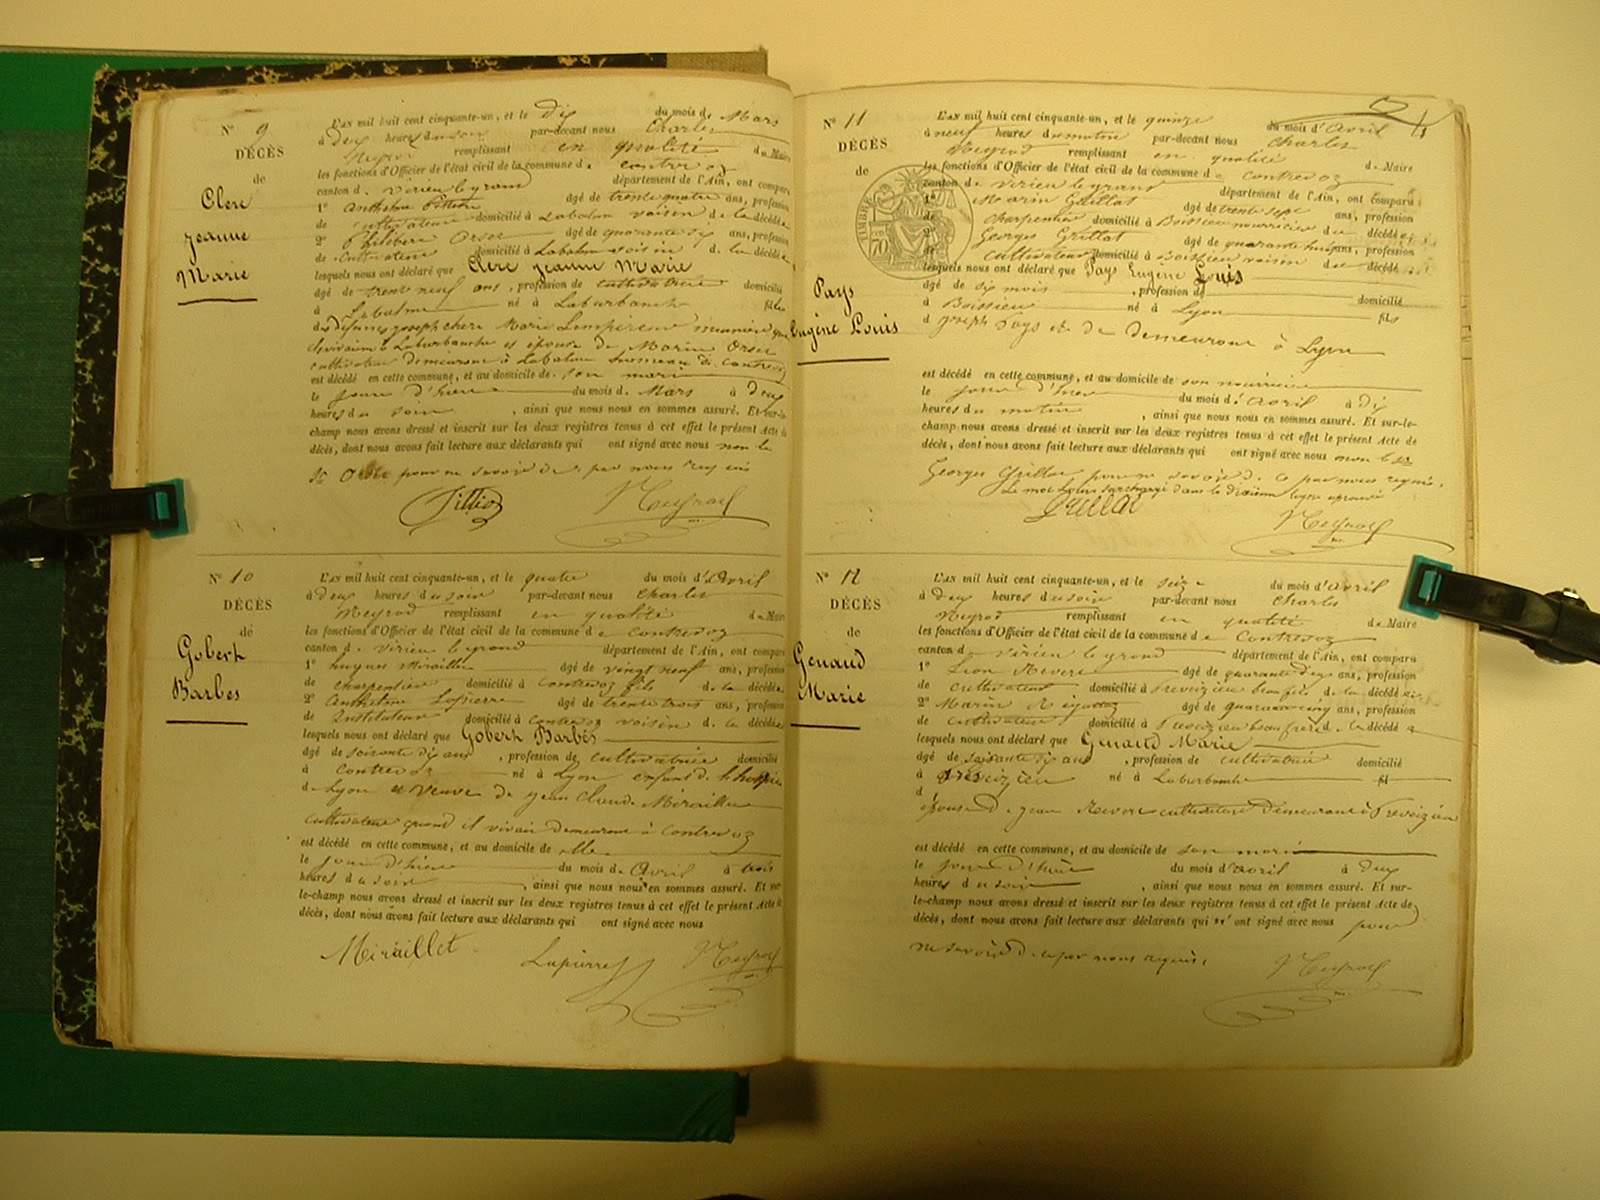 Nº 9
DÉCÈS
de
Clerc
Jeanne
Marie
L'AN mil huit cent cinquante-un, et le dix du mois de Mars
à deux heures du soir par-devant nous Charles
Neyrod remplissant en qualité de Maire
les fonctions d'Officier de l'état civil de la commune de Contrevoz
canton de Virieu le grand département de l'Ain, ont comparu
1º Anthelme âgé de trente quatre ans, profession
de cultivateur domicilié à Labalme voisin de la décédée
2º Philibert Orset âgé de quarante six ans, profession
de cultivateur domicilié à Labalme voisin de la décédée
lesquels nous ont déclaré que Clerc Jeanne Marie
âgé de trente neuf ans, profession de cultivatrice domicilié
à Labalme né à Laburbanche fille
des défunts joseph clerc Marie Lempereur
à Laburbanche et épouse de Marin Orset
cultivateur demeurant à Labalme hameau de Contrevoz
est décédé en cette commune, et au domicile de son mari
le jour d'hier du mois de Mars à deux
heures du soir, ainsi que nous nous en sommes assuré. Et sur-le-
champ nous avons dressé et inscrit sur les deux registres tenus à cet effet le présent Acte de
décès, dont nous avons fait lecture aux déclarants qui ont signé avec nous non le
Sr Orset pour ne savoir de ce par nous requis
Neyrod
Nº 10
DÉCÈS
de
Goberh
Barbes
L'AN mil huit cent cinquante-un, et le quatre du mois d'avril
à deux heures du soir par-devant nous Charles
Neyrod remplissant en qualité de Maire
les fonctions d'Officier de l'état civil de la commune de Contrevoz
canton de Virieu le grand département de l'Ain, ont comparu
1º hugues Miraillet âgé de vingt neuf ans, profession
de charpentier domicilié à Contrevoz fils de la décédée
2º Anthelme Lapierre âgé de trente trois ans, profession
de Instituteur domicilié à Contrevoz voisin de la décédée
lesquels nous ont déclaré que Goberh Barbes
âgé de soixante dix ans, profession de cultivatrice domicilié
à Contrevoz né à Lyon enfant de l'hospice
de Lyon et veuve de Jean Claude Miraillet
cultivateur quand il vivait demeurant à Contrevoz
est décédé en cette commune, et au domicile de elle
le jour d'hier du mois de Avril à trois
heures du soir, ainsi que nous nous en sommes assuré. Et sur-
le-champ nous avons dressé et inscrit sur les deux registres tenus à cet effet le présent Acte de
décès, dont nous avons fait lecture aux déclarants qui ont signé avec nous
Miraillet Lapierre Neyrod
Nº 11
DÉCÈS
de
TIMBRE
70
Pays
Eugène Louis
L'AN mil huit cent cinquante-un, et le quinze du mois d'Avril
à neuf heures du matin par-devant nous Charles
Neyrod remplissant en qualité de Maire
les fonctions d'Officier de l'état civil de la commune de Contrevoz
canton de Virieu le grand département de l'Ain, ont comparu
1º Marin Guillat âgé de trente sept ans, profession
de charpentier domicilié à Boissieu nourricier du décédé
2º Georges Grillat âgé de quarante huit ans, profession
de cultivateur domicilié à Boissieu voisin du décédé
lesquels nous ont déclaré que Pays Eugène Louis
âgé de six mois, profession de domicilié
à Boissieu né à Lyon fils
d joseph Pays et de demeurant à Lyon
est décédé en cette commune, et au domicile de son nourricier
le jour d'hier du mois d'avril à dix
heures du matin, ainsi que nous nous en sommes assuré. Et sur-le-
champ nous avons dressé et inscrit sur les deux registres tenus à cet effet le présent Acte de
décès, dont nous avons fait lecture aux déclarants qui ont signé avec nous non le Sr
Georges Grillat pour ne savoir de ce par nous requis.
Le mot Louis surchargé dans la dixième ligne approuvé
Neyrod
Nº 12
DÉCÈS
de
Genaud
Marie
L'AN mil huit cent cinquante-un, et le seize du mois d'Avril
à deux heures du soir par-devant nous Charles
Neyrod remplissant en qualité de Maire
les fonctions d'Officier de l'état civil de la commune de Contrevoz
canton de Virieu le grand département de l'Ain, ont comparu
1º Léon Revere âgé de quarante deux ans, profession
de cultivateur domicilié à Preveizieu beau fils de la décédée
2º Marin âgé de quarante cinq ans, profession
de cultivateur domicilié à Preveizieu beau frère de la décédée
lesquels nous ont déclaré que Genaud Marie
âgé de soixante dix ans, profession de cultivatrice domicilié
à Preveizieu né à Laburbanche fil
d
épouse de Jean Revere cultivateur demeurant à Preveizieu
est décédé en cette commune, et au domicile de son mari
le jour d'hier du mois d'avril à deux
heures du soir, ainsi que nous nous en sommes assuré. Et sur-
le-champ nous avons dressé et inscrit sur les deux registres tenus à cet effet le présent Acte de
décès, dont nous avons fait lecture aux déclarants qui n'ont signé avec nous pour
ne savoir de ce par nous requis.
Neyrod